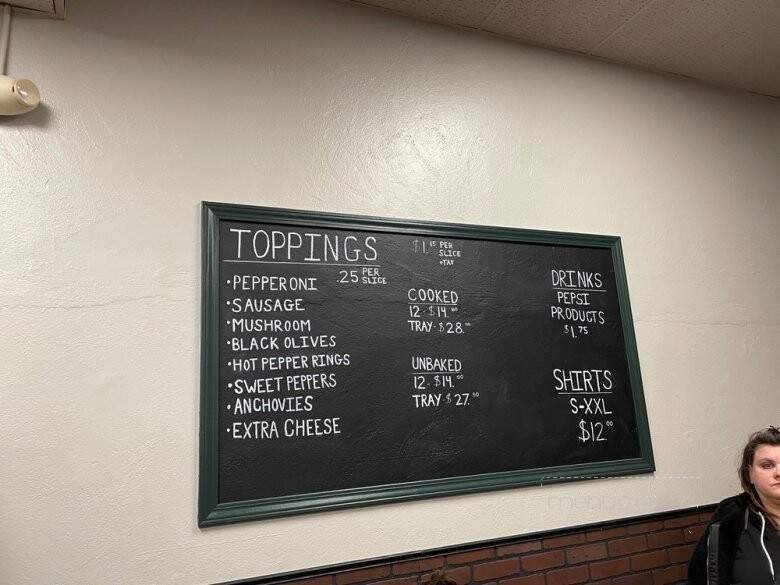 TOPPINGS
.25 PER SLICE
•PEPPERONI
•SAUSAGE
•MUSHROOM
•BLACK OLIVES
•HOT PEPPER RINGS
•SWEET PEPPERS
•ANCHOVIES
•EXTRA CHEESE
$1.15 PER
SLICE
+TAX
COOKED
12-$14.00
TRAY-$28.00
UNBAKED
12-$14.00
TRAY-$27.00
DRINKS
PEPSI
PRODUCTS
$1.75
SHIRTS
S-XXL
$12.00